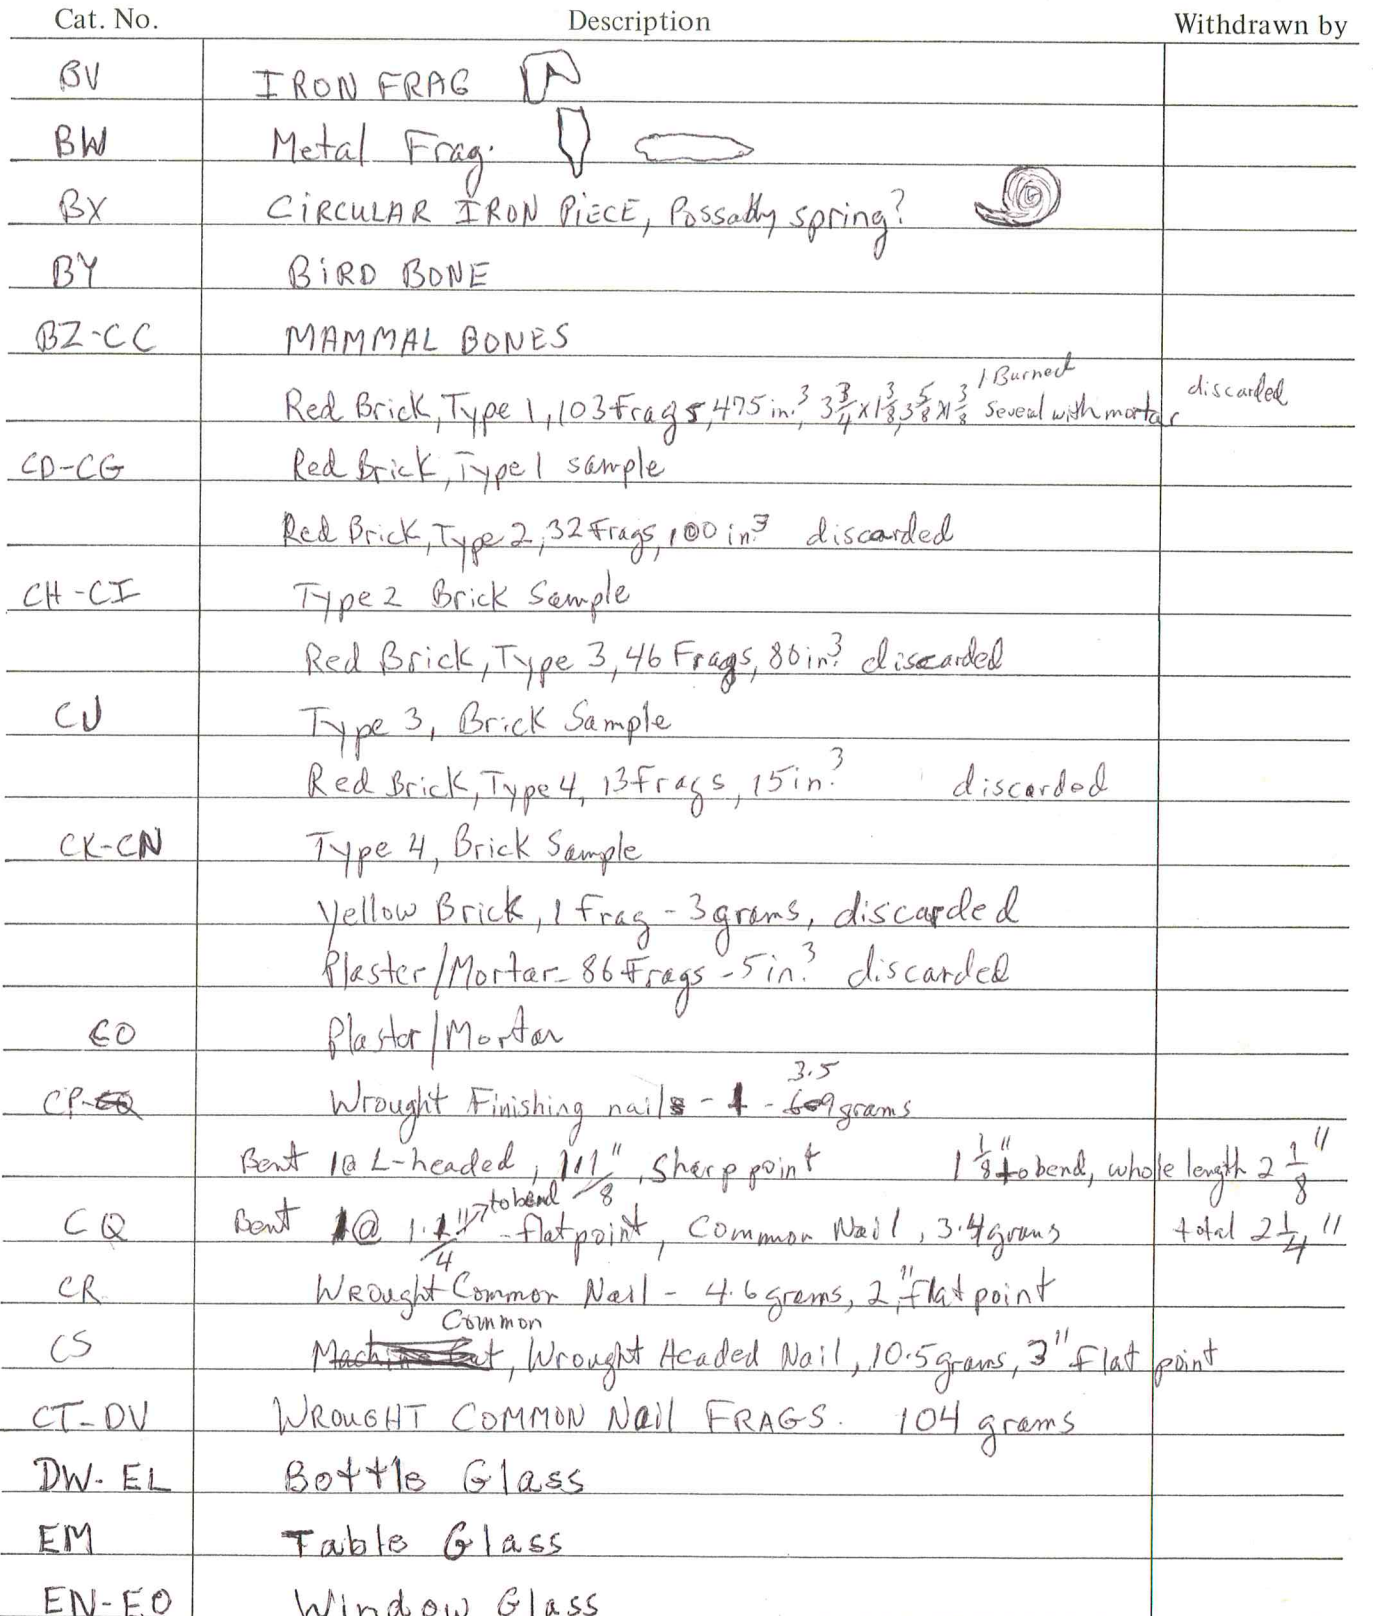 Cat. No. Description Withdrawn by
BV IRON FRAG
BW Metal Frag.
BX CIRCULAR IRON PIECE, Possably spring?
BY BIRD BONE
BZ-CC MAMMAL BONES
1 Burned
Red Brick, Type 1, 103 Frags, 475 in.³ 3 3/4 x 1 3/8, 3 5/8 x 1 3/8 Several with mortar discarded
CD-CG Red Brick, Type 1 sample
Red Brick, Type 2, 32 Frags, 100 in.³ discarded
CH-CI Type 2 Brick Sample
Red Brick, Type 3, 46 Frags, 80 in.³ discarded
CJ Type 3, Brick Sample
Red Brick, Type 4, 13 Frags, 15 in.³ discarded
CK-CN Type 4, Brick Sample
Yellow Brick, 1 Frag - 3 grams, discarded
Plaster/Mortar - 86 Frags - 5 in.³ discarded
CO Plaster/Mortar
3.5
CP- Wrought Finishing nail - 1 - grams
Bent 1@ L-headed, 1 1/8", Sharp point 1 1/8" to bend, whole length 2 1/8"
to bend
CQ Bent 1@ 1. 1/4" - flat point, Common Nail, 3.4 grams total 2 1/4"
CR Wrought Common Nail - 4.6 grams, 2", flat point
Common
CS , Wrought Headed Nail, 10.5 grams, 3" Flat point
CT-DV WROUGHT COMMON NAIL FRAGS. 104 grams
DW-EL Bottle Glass
EM Table Glass
EN-EO Window Glass